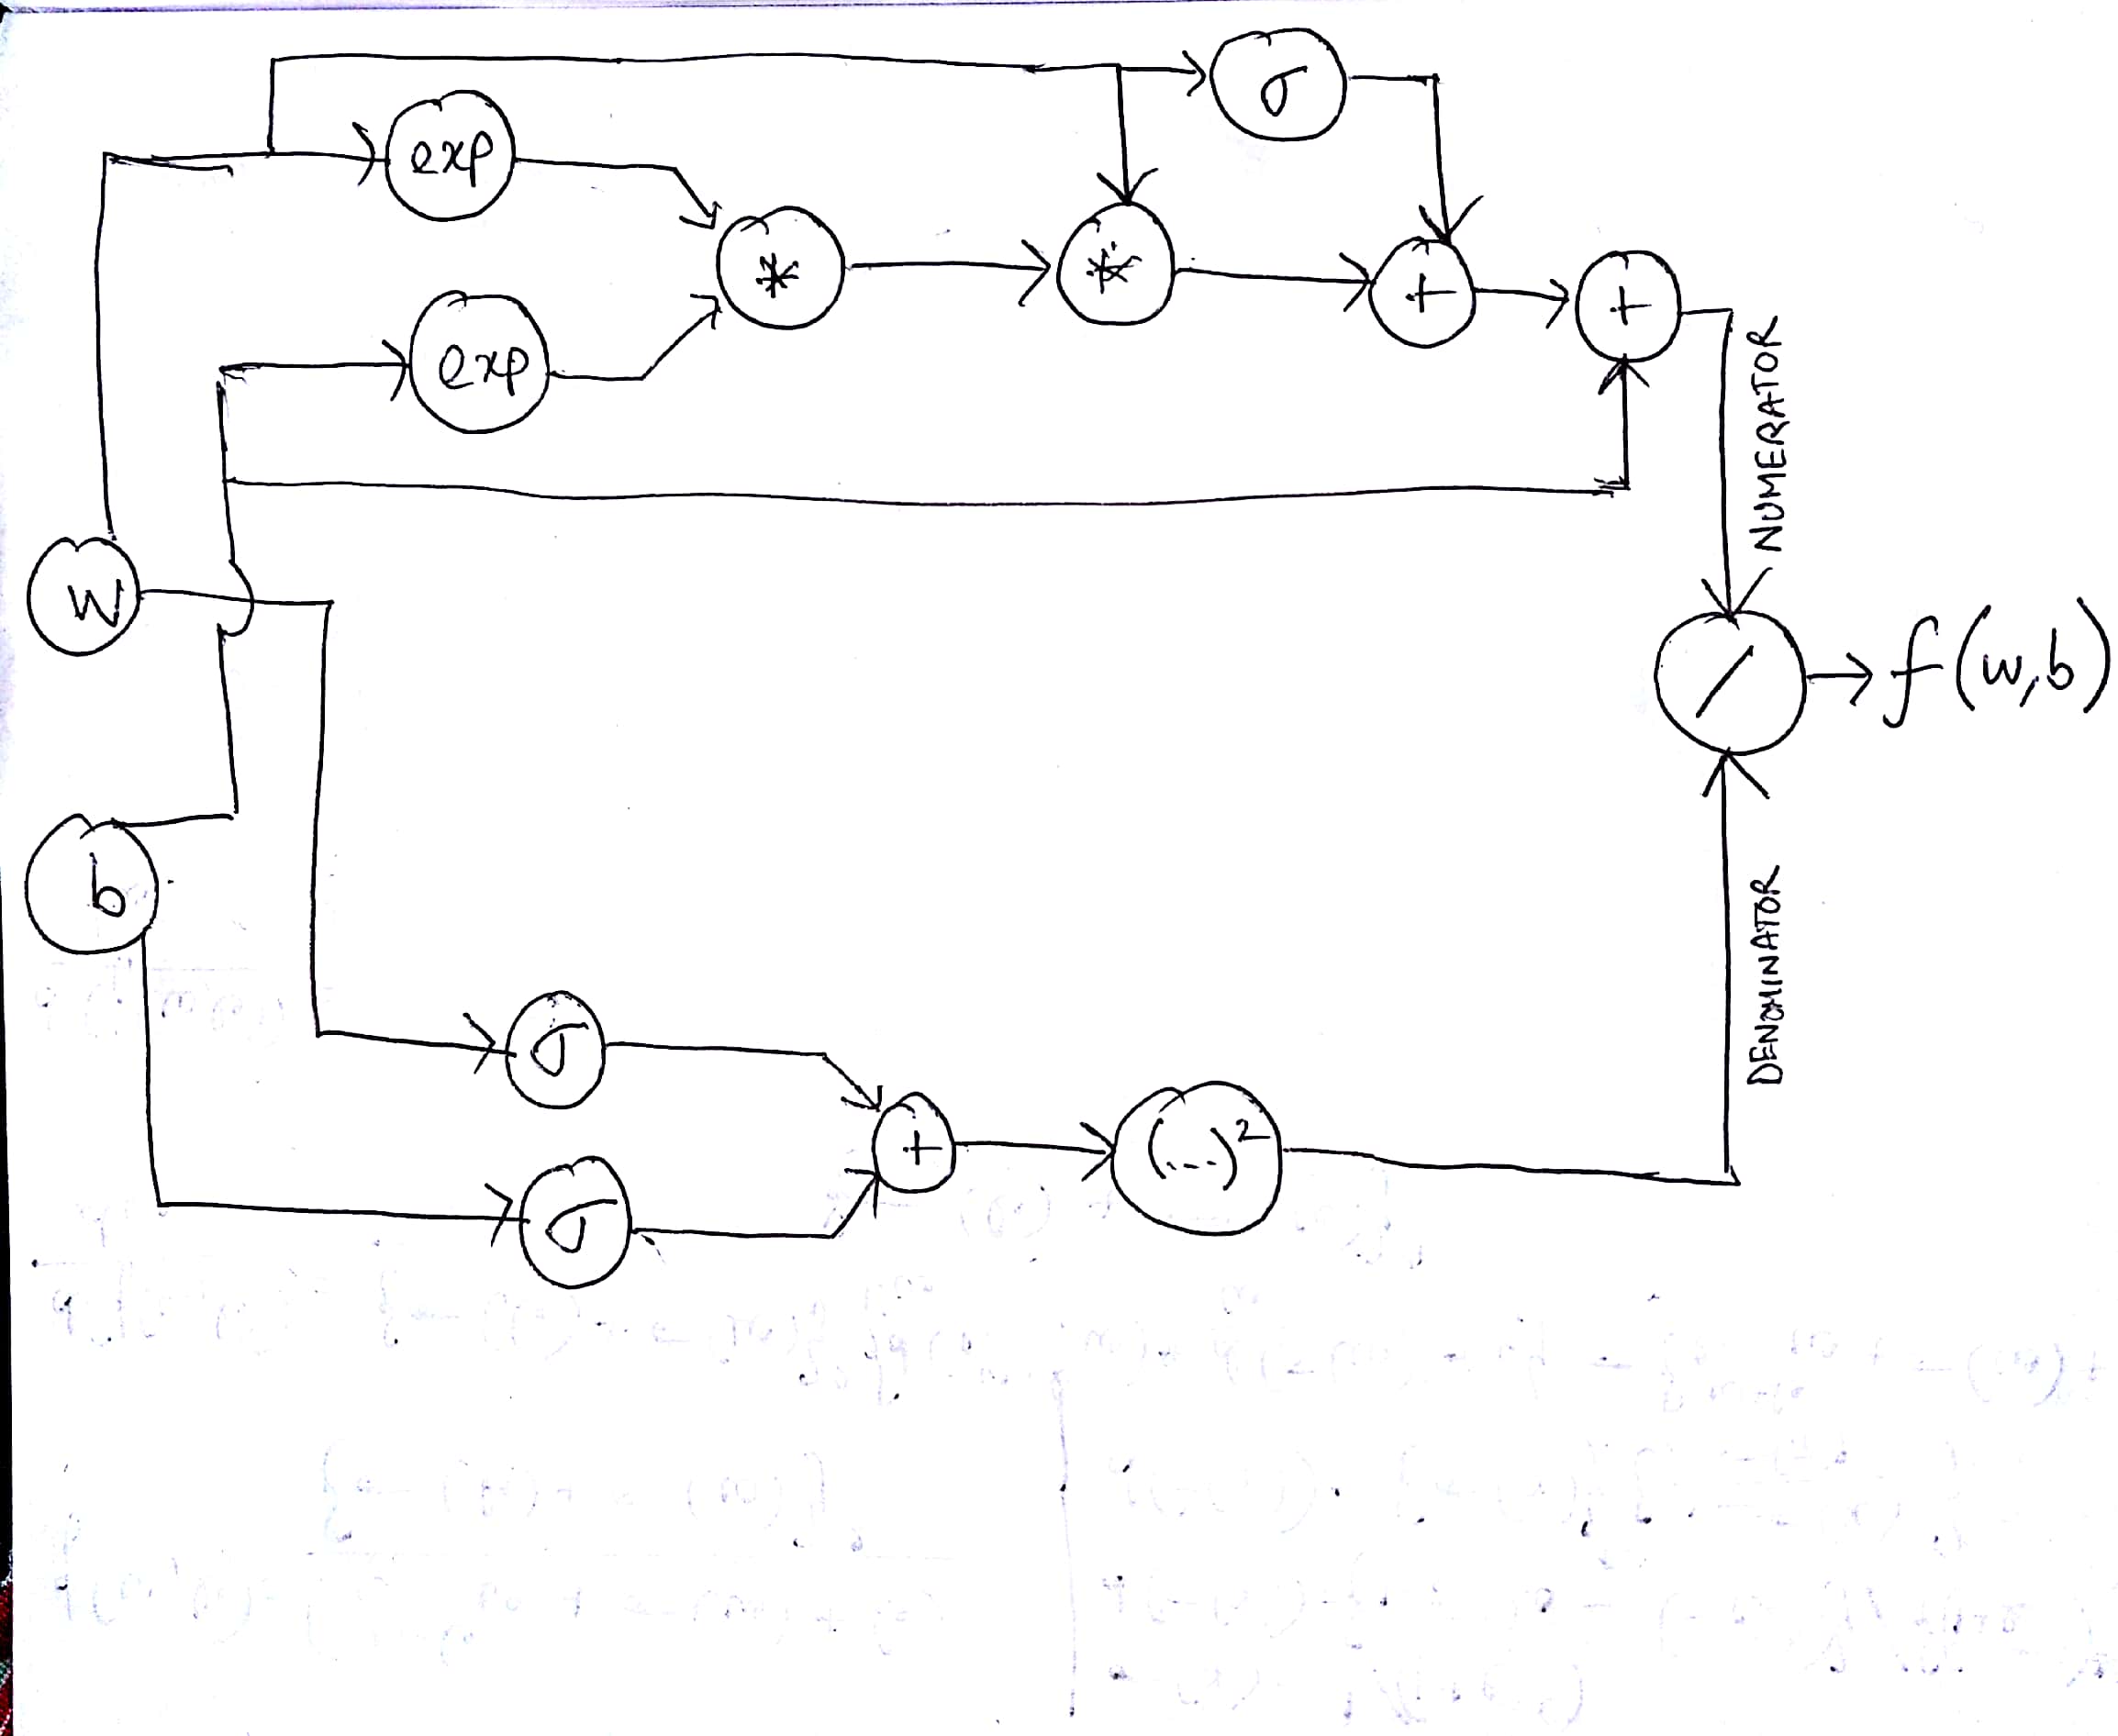 σ
exp
*
*
+
+
exp
NUMERATOR
w
/
→ f(w,b)
b
DENOMINATOR
σ
+
(...)²
σ